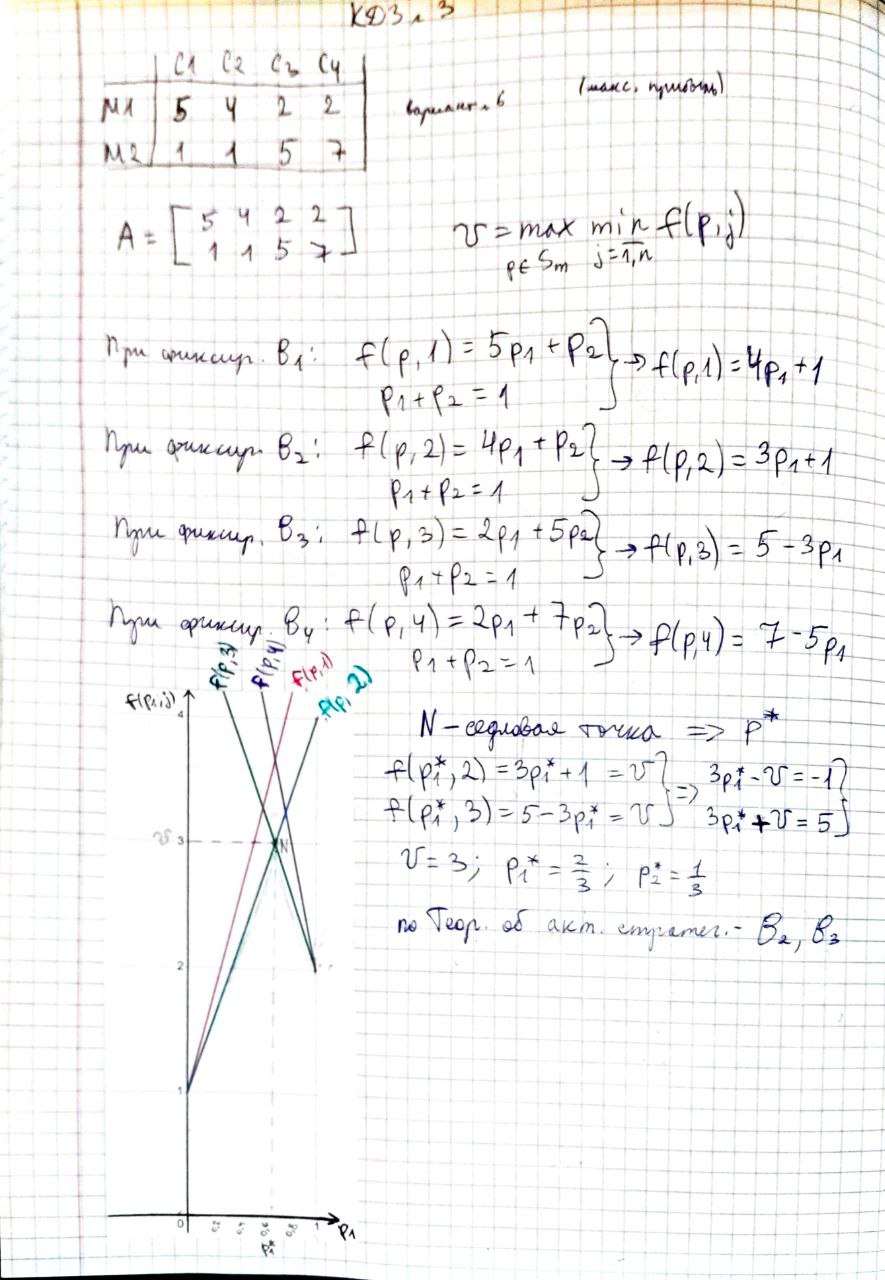 КДЗ № 3
C1 C2 C3 C4
M1 5 4 2 2
M2 1 1 5 7
вариант № 6
(макс. прибыль)
A = [5 4 2 2
1 1 5 7]
v = max min f(p,j)
p∈Sm j=1,n
При фиксир. B1: f(p,1) = 5p1 + p2 } → f(p,1) = 4p1 + 1
p1 + p2 = 1
При фиксир. B2: f(p,2) = 4p1 + p2 } → f(p,2) = 3p1 + 1
p1 + p2 = 1
При фиксир. B3: f(p,3) = 2p1 + 5p2 } → f(p,3) = 5 - 3p1
p1 + p2 = 1
При фиксир. B4: f(p,4) = 2p1 + 7p2 } → f(p,4) = 7 - 5p1
p1 + p2 = 1
f(p1,j)
f(p,3)
f(p,4)
f(p,1)
f(p,2)
4
v 3
N
2
1
0 0,2 0,4 0,6 0,8 1 p1
p1*
N - седловая точка => p*
f(p1*,2) = 3p1* + 1 = v } => 3p1* - v = -1 }
f(p1*,3) = 5 - 3p1* = v } 3p1* + v = 5 }
v = 3; p1* = 2/3; p2* = 1/3
по Теор. об акт. стратег. - B2, B3